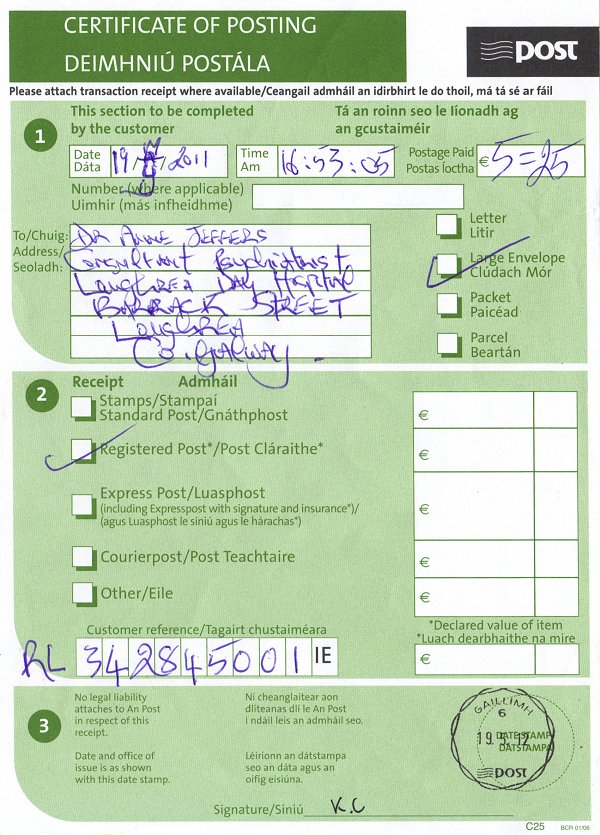 CERTIFICATE OF POSTING
DEIMHNIÚ POSTÁLA
post
Please attach transaction receipt where available/Ceangail admháil an idirbhirt le do thoil, má tá sé ar fáil
1
This section to be completed by the customer
Tá an roinn seo le líonadh ag an gcustaiméir
Date
Dáta
19 2011
Time
Am
16:53:05
Postage Paid
Postas íoctha
€5=25
Number (where applicable)
Uimhir (más infheidhme)
To/Chuig:
Address/
Seoladh:
DR ANNE JEFFERS
Consultant Psychiatrist
LOUGHREA DAY Hospital
BARRACK STREET
LOUGHREA
Co. GALWAY.
Letter
Litir
Large Envelope
Clúdach Mór
Packet
Paicéad
Parcel
Beartán
2
Receipt Admháil
Stamps/Stampaí
Standard Post/Gnáthphost
€
Registered Post*/Post Cláraithe*
€
Express Post/Luasphost
(including Expresspost with signature and insurance*)/
(agus Luasphost le síniú agus le hárachas*)
€
Courierpost/Post Teachtaire
€
Other/Eile
€
*Declared value of item
*Luach dearbhaithe na míre
€
Customer reference/Tagairt chustaiméara
RL 342845001 IE
3
No legal liability
attaches to An Post
in respect of this
receipt.
Date and office of
issue is as shown
with this date stamp.
Ní cheanglaítear aon
dliteanas dlí le An Post
i ndáil leis an admháil seo.
Léiríonn an dátstampa
seo an dáta agus an
oifig eisiúna.
GAILLIMH
6
DATE STAMP
DÁTSTAMPA
post
Signature/Síniú K.C
C25 BCR 01/06